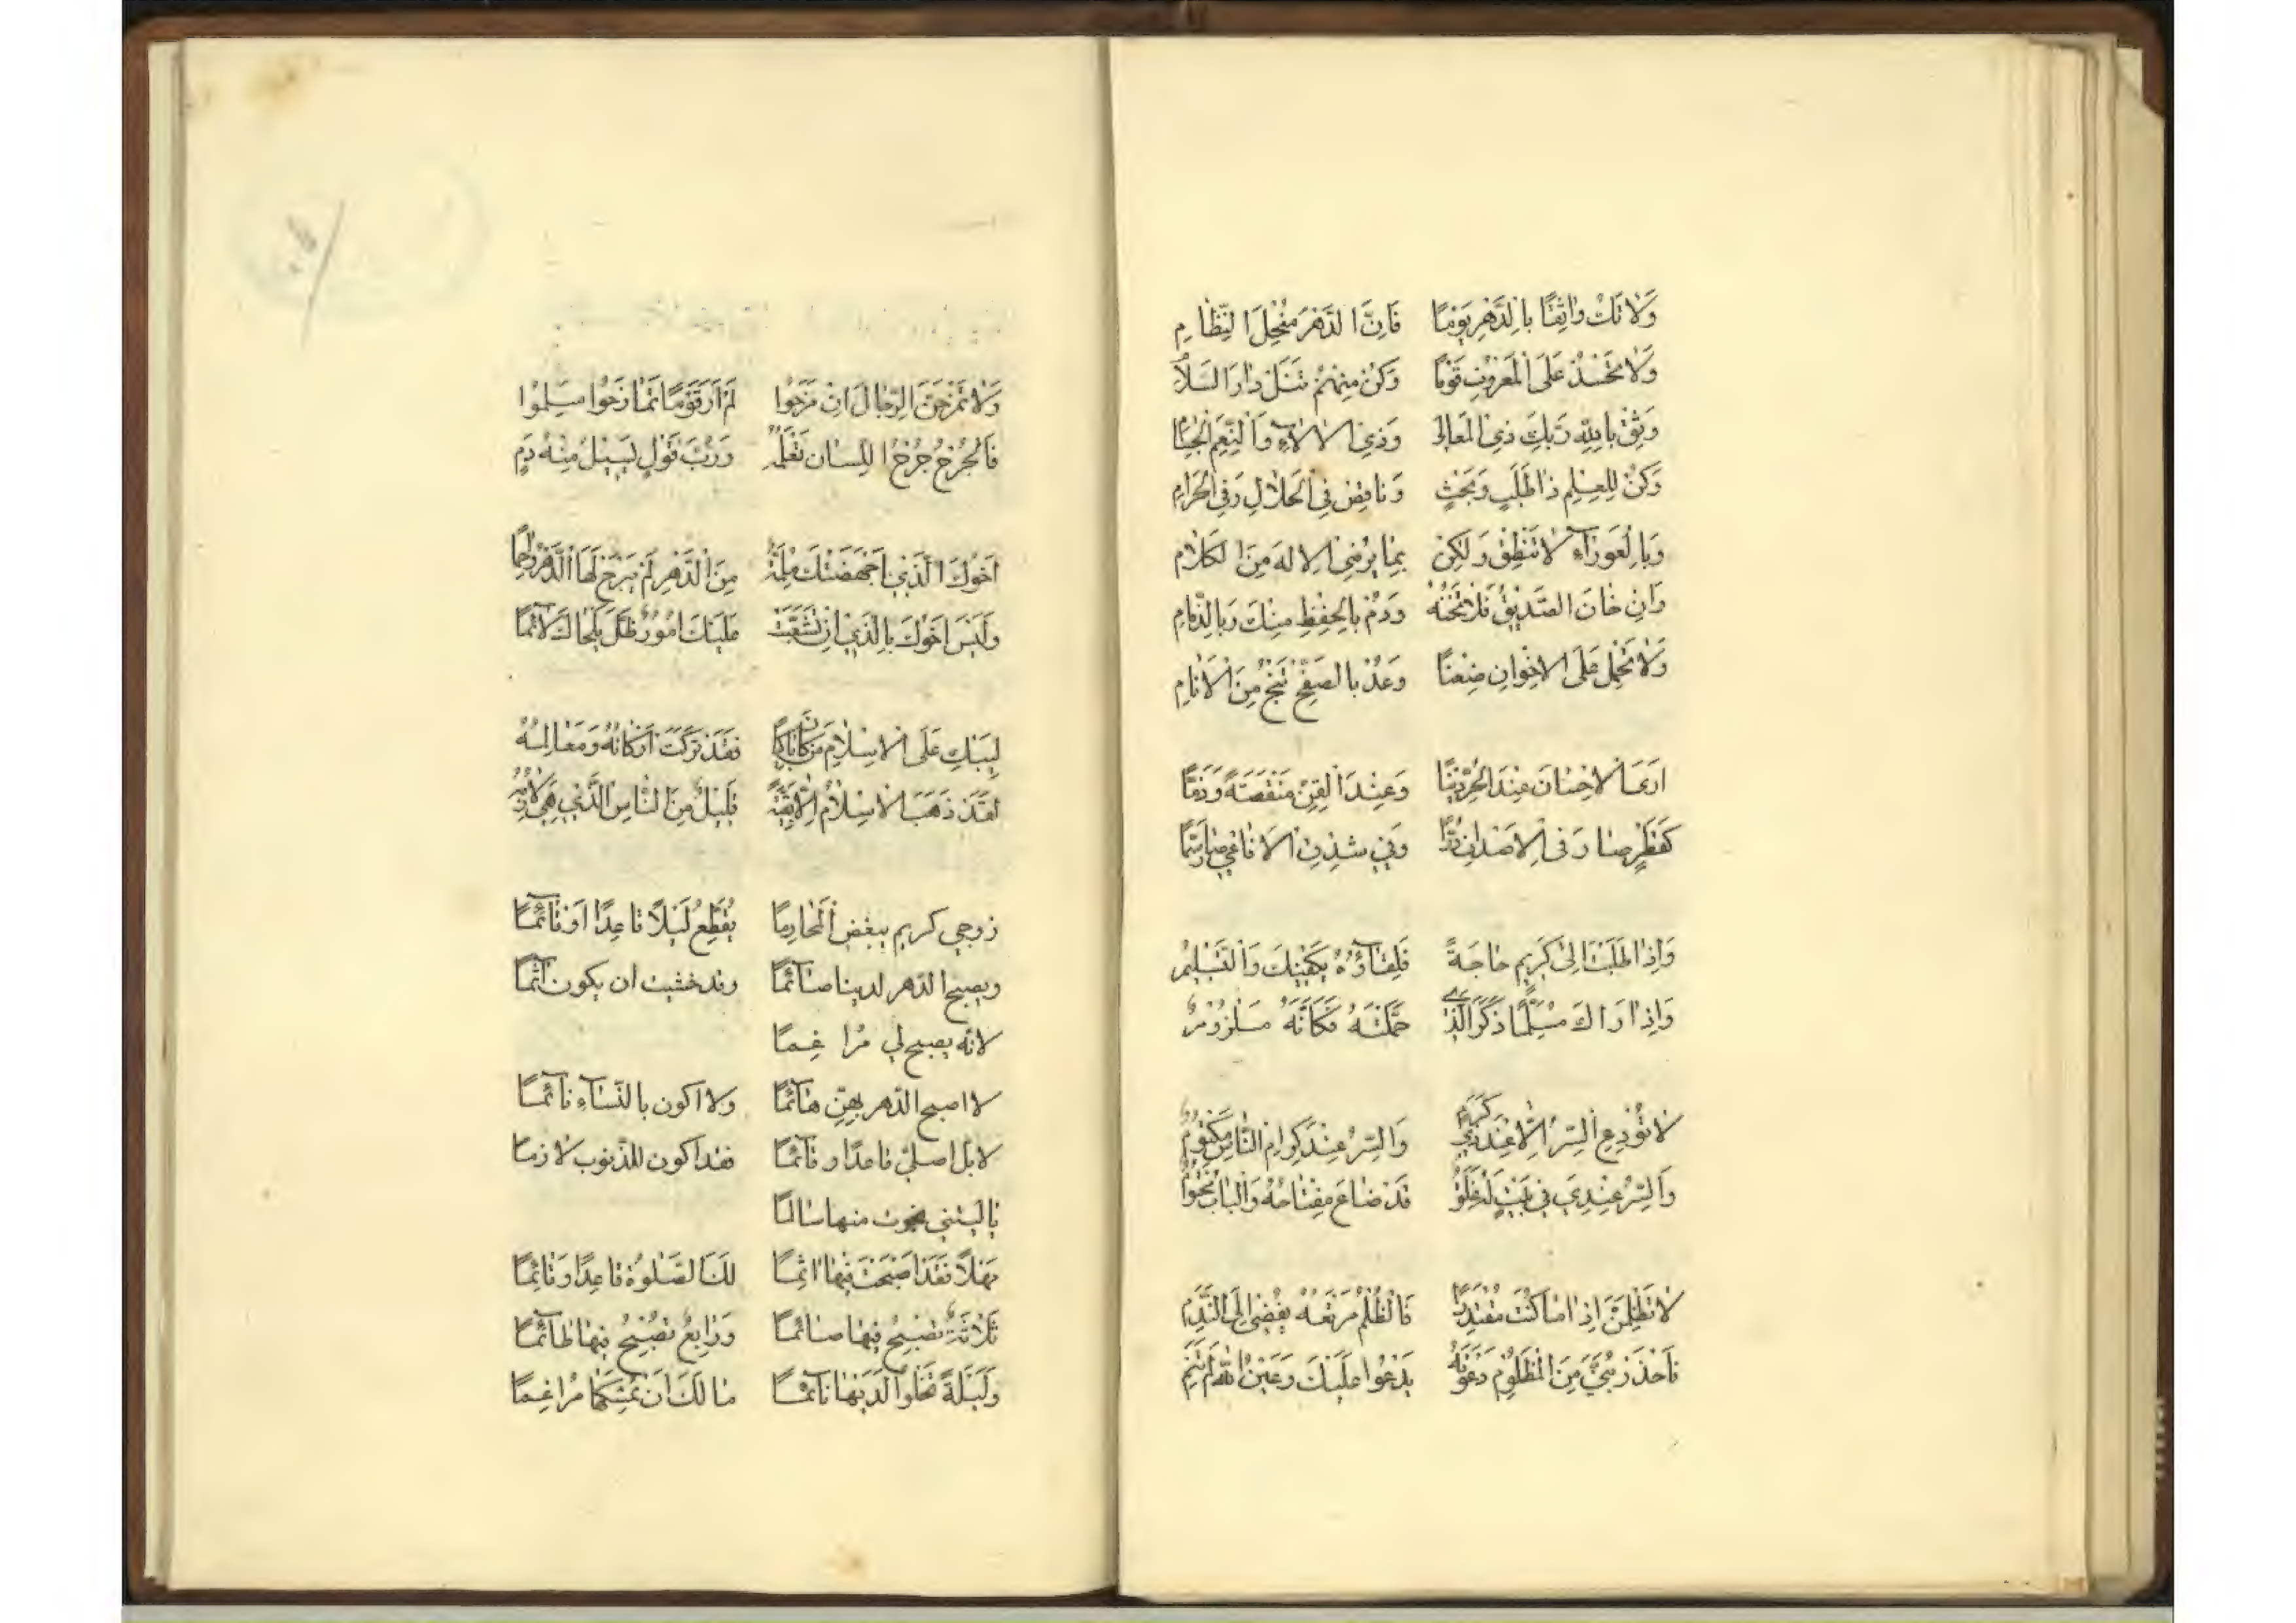 وَلَا تَكُ وَاثِقًا بِالدَّهْرِ يَوْمًا فَاِنَّ الدَّهْرَ مُنْحَلُّ النِّظَامِ
وَلَا تَحْسُدْ عَلَى الْمَعْرُوفِ قَوْمًا وَكُنْ مِنْهُمْ تَنَلْ دَارَ السَّلَامِ
وَثِقْ بِاللهِ رَبِّكَ ذِي الْمَعَالِي وَذِي الْاٰلَاءِ وَالنِّعَمِ الْجِسَامِ
وَكُنْ لِلْعِلْمِ ذَا طَلَبٍ وَبَحْثٍ وَنَاقِضْ فِي الْحَلَالِ وَفِي الْحَرَامِ
وَبِالْعَوْرَاءِ لَا تَنْطِقْ وَلٰكِنْ بِمَا يُرْضِي الْاِلٰهَ مِنَ الْكَلَامِ
وَاِنْ خَانَ الصَّدِيقُ فَلَا تَخُنْهُ وَدُمْ بِالْحِفْظِ مِنْكَ وَبِالذِّمَامِ
وَلَا تَحْمِلْ عَلَى الْاِخْوَانِ ضِغْنًا وَعُدْ بِالصَّفْحِ تَنْجُ مِنَ الْاَنَامِ
اَرَى الْاِحْسَانَ عِنْدَ الْحُرِّ دَيْنًا وَعِنْدَ الْقِنِّ مَنْقَصَةً وَذَمًّا
كَقَطْرٍ صَارَ فِي الْاَصْدَافِ دُرًّا وَفِي شِدْقِ الْاَفَاعِي صَارَ سَمًّا
وَاِذَا طَلَبْتَ اِلَى كَرِيمٍ حَاجَةً فَلِقَاؤُهُ يَكْفِيكَ وَالتَّسْلِيمُ
وَاِذَا رَاٰكَ مُسَلِّمًا ذَكَرَ الَّذِي حَمَّلْتَهُ فَكَاَنَّهُ مَلْزُومٌ
لَا تُودِعِ السِّرَّ اِلَّا عِنْدَ ذِي كَرَمٍ وَالسِّرُّ عِنْدَ كِرَامِ النَّاسِ مَكْتُومٌ
وَالسِّرُّ عِنْدِي فِي بَيْتٍ لَهُ غَلَقٌ قَدْ ضَاعَ مِفْتَاحُهُ وَالْبَابُ مَخْتُومٌ
لَا تَظْلِمَنَّ اِذَا مَا كُنْتَ مُقْتَدِرًا فَالظُّلْمُ مَرْتَعُهُ يُفْضِي اِلَى النَّدَمِ
فَاحْذَرْ بُنَيَّ مِنَ الْمَظْلُومِ دَعْوَتَهُ يَدْعُوا عَلَيْكَ وَعَيْنُ اللهِ لَمْ تَنَمِ
وَلَا تَمْزَحَنَّ الرِّجَالَ اِنْ مَزَحُوا لَمْ اَرَ قَوْمًا تَمَازَحُوا سَلِمُوا
فَالْجُرْحُ جُرْحُ اللِّسَانِ تَعْلَمُهُ وَرُبَّ قَوْلٍ يَسِيلُ مِنْهُ دَمٌ
اَخُوكَ الَّذِي اِنْ اَجْهَضَتْكَ مُلِمَّةٌ مِنَ الدَّهْرِ لَمْ يَبْرَحْ لَهَا الدَّهْرَ وَاجِمًا
وَلَيْسَ اَخُوكَ بِالَّذِي اِنْ تَشَعَّبَتْ عَلَيْكَ اُمُورٌ ظَلَّ يَلْحَاكَ لَائِمًا
لِيَبْكِ عَلَى الْاِسْلَامِ مَنْ كَانَ بَاكِيًا فَقَدْ تُرِكَتْ اَرْكَانُهُ وَمَعَالِمُهُ
لَقَدْ ذَهَبَ الْاِسْلَامُ اِلَّا بَقِيَّةً قَلِيلٌ مِنَ النَّاسِ الَّذِي هُوَ لَازِمُهُ
زوجي كريم يبغض الْمَحَارِمَا يُقَطِّعُ لَيْلًا قَاعِدًا اَوْ قَائِمًا
ويصبح الدّهر لدينا صَائِمًا وقد خشيت ان يكون اٰثِمًا
لانّه يصبح لي مُرَاغِمًا
لا اصبح الدّهر بهنّ هَائِمًا ولا اكون بالنّسَاءِ نَائِمًا
لا بل اصلّي قاعدًا وقَائِمًا فقد اكون للذّنوب لَازمًا
يا ليتني نجوت منها سَالِمًا
مَهْلًا فَقَدْ اَصْبَحْتَ فِيهَا اٰثِمًا لَكَ الصَّلٰوةُ قَاعِدًا وَقَائِمًا
ثَلَاثَةٌ تُصْبِحُ فِيهَا صَائِمًا وَرَابِعٌ تُصْبِحُ فِيهَا طَاعِمًا
وَلَيْلَةً تَخْلُو لَدَيْهَا نَائِمًا مَا لَكَ اَنْ تُمْسِكَهَا مُرَاغِمًا